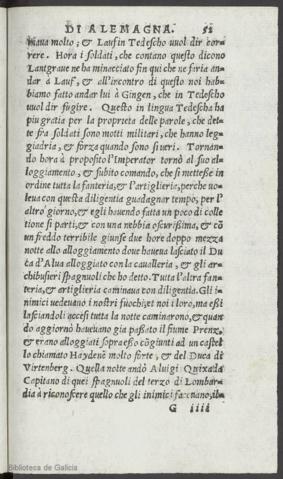 DI ALEMAGNA. 52
maua molto; & Lausin Tedescho uuol dir cor-
rere. Hora i soldati, che contano questo dicono
Lantgraue ne ha minacciato fin qui che ne faria an-
dar à Lauf, & all'incontro di questo noi hab-
biamo fatto andar lui à Gingen, che in Tedescho
uuol dir fugire. Questo in lingua Tedescha ha
piu gratia per la proprieta delle parole, che det-
te fra soldati sono motti militari, che hanno leg-
giadria, & forza quando sono si ueri. Tornan-
do hora à proposito l'Imperator tornò al suo al-
loggiamento, & subito comando, che si mettesse in
ordine tutta la fanteria, & l'artiglieria, perche uo-
leua con questa diligentia guadagnar tempo, per l'
altro giorno, & egli hauendo fatta un poco di colle
tione si partì, & con una nebbia oscurissima, & cõ
un freddo terribile giunse due hore doppo mezza
notte allo alloggiamento doue haueua lasciato il Du
ca d'Alua alloggiato con la caualleria, & gli ar-
chibusieri spagnuoli che ho detto. Tutta l'altra fan-
teria, & artiglieria caminaua con diligentia. Gli i-
nimici uedeuano i nostri fuochi, et noi i loro, ma essi
lasciandoli accesi tutta la notte caminorono, & quan
do aggiornò haueuano gia passato il fiume Prenz,
& erano alloggiati sopra esso cõgiunti ad un castel
lo chiamato Haydenè molto forte, & del Duca di
Virtenberg. Quella notte andò Aluigi Quixada
Capitano di quei spagnuoli del terzo di Lombar-
dia à riconoscere quello che gli inimici faceuano, il-
G iiii
Biblioteca de Galicia